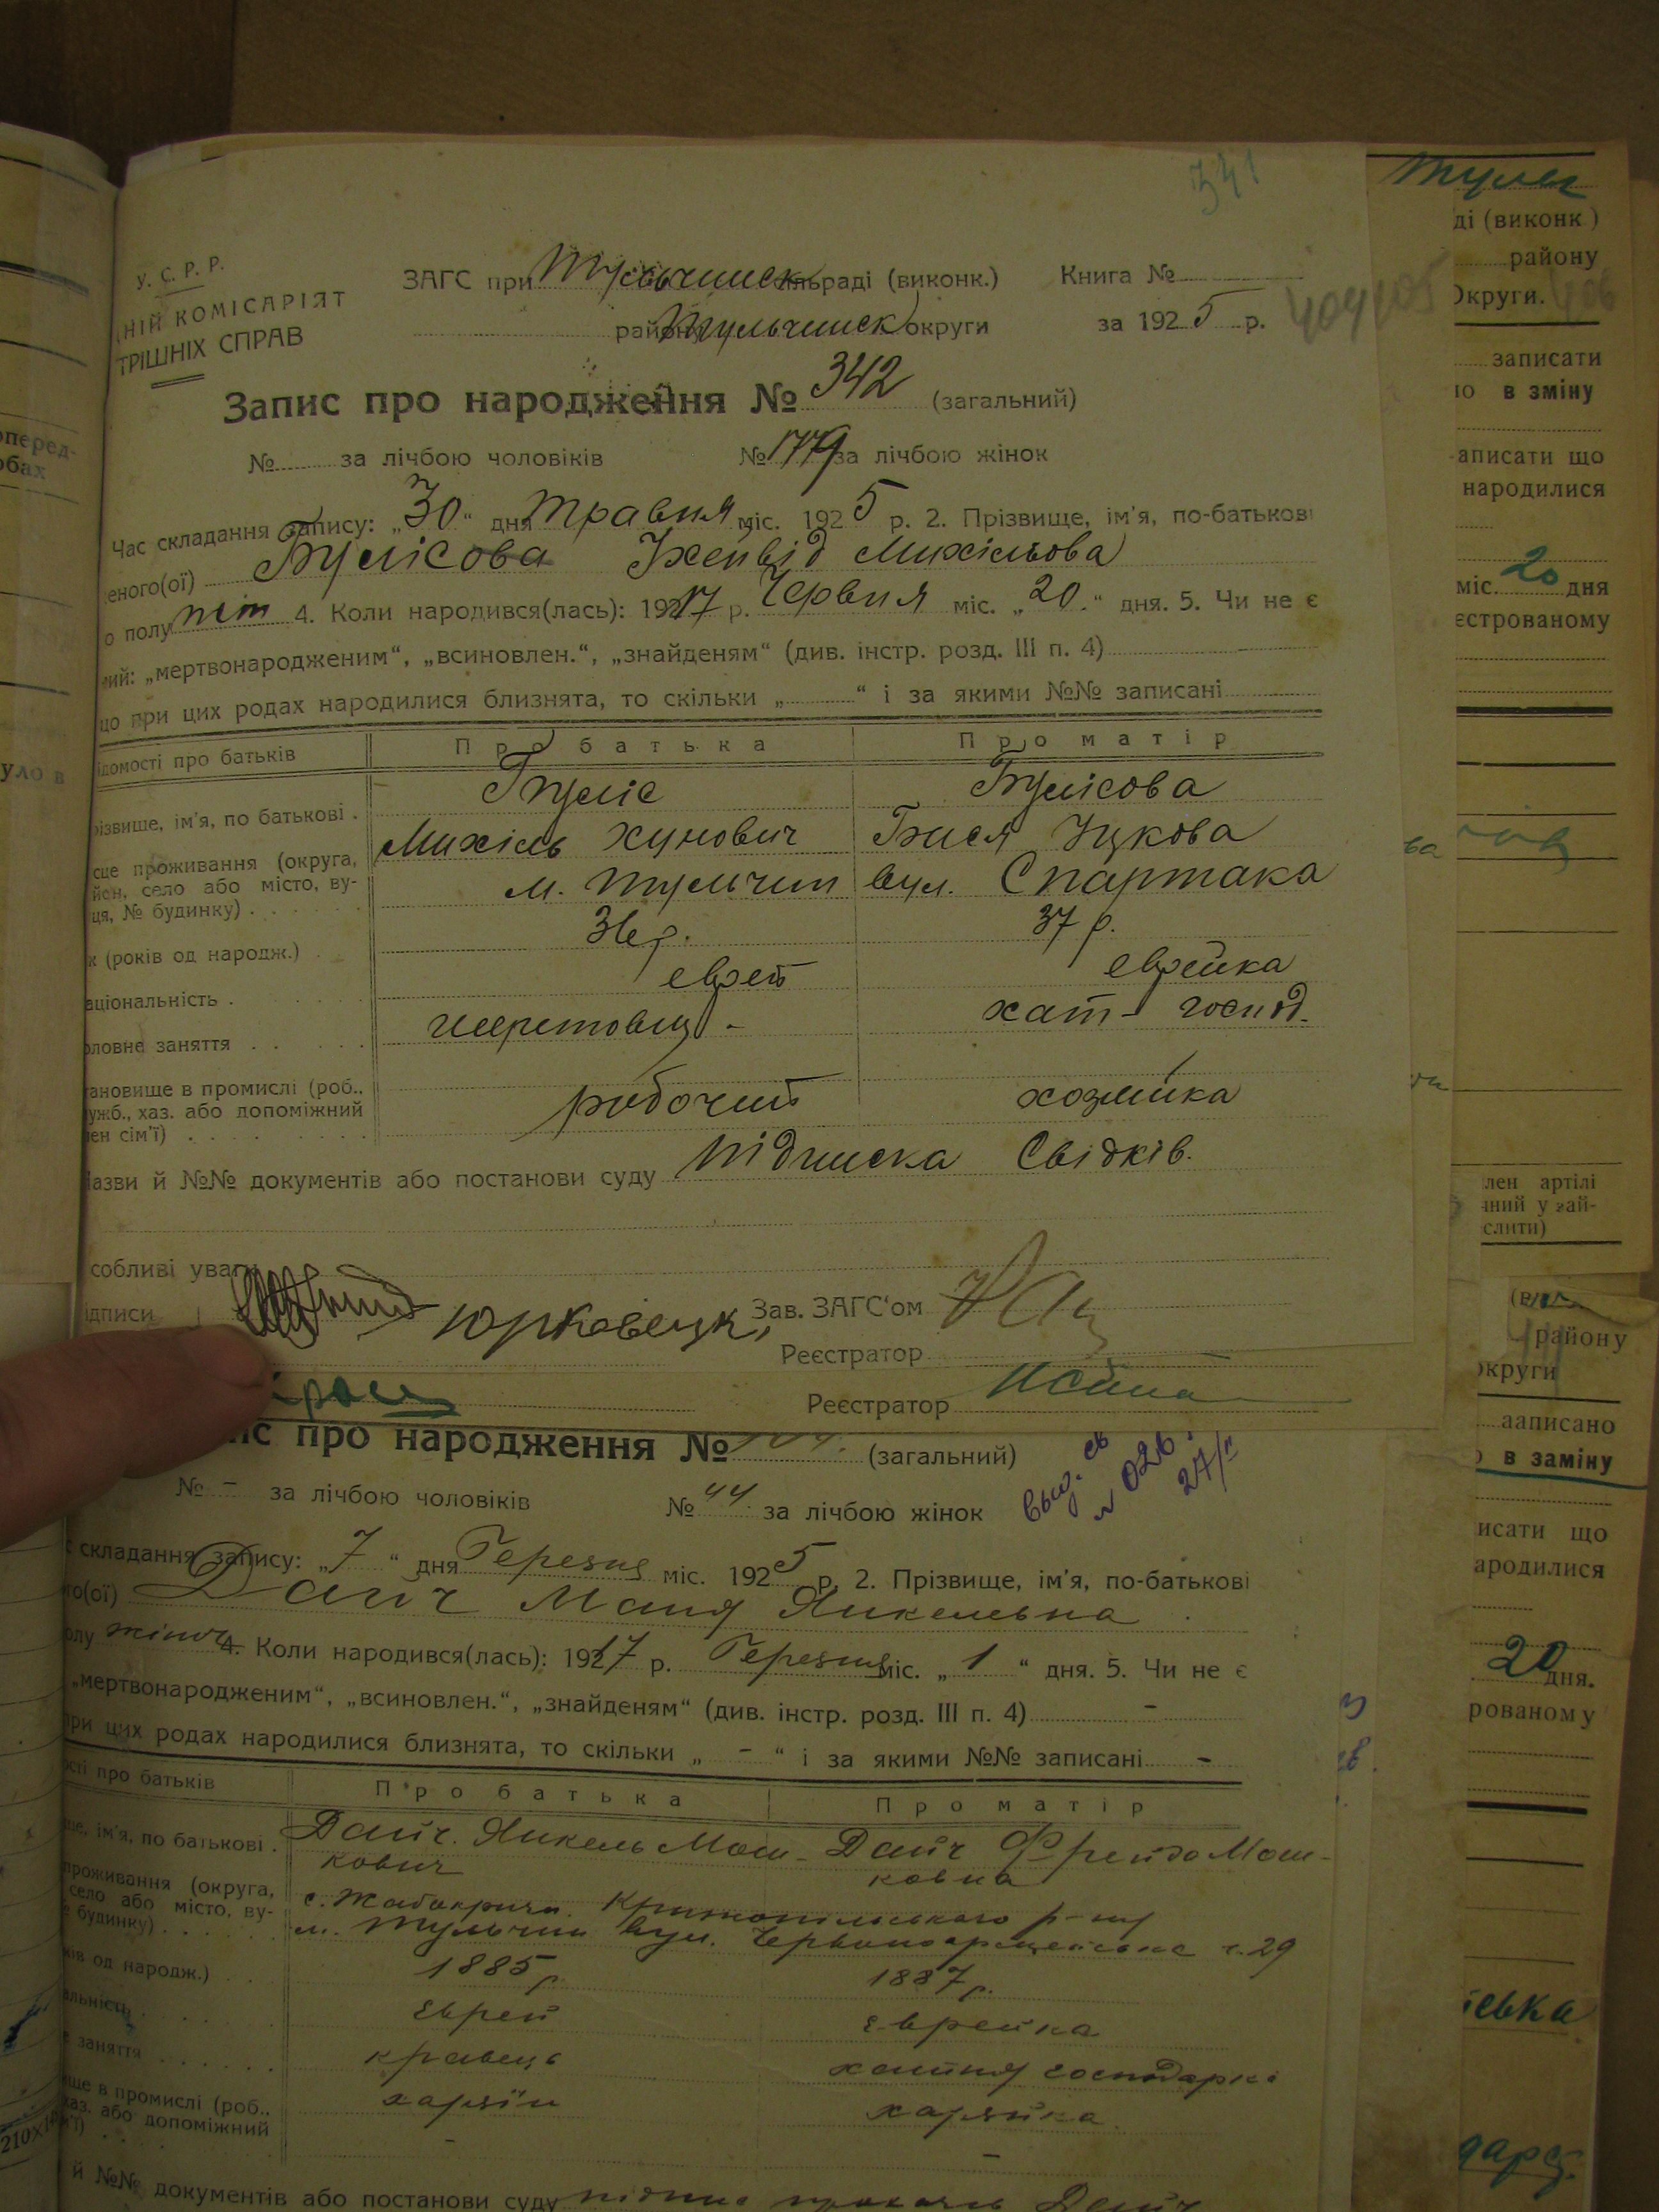 341
У. С. Р. Р.
НІЙ КОМІСАРІЯТ
ТРІШНІХ СПРАВ
ЗАГС при Тульчинск раді (виконк.) Книга №
району Тульчинск округи за 1925 р.
Запис про народження № 342 (загальний)
№ за лічбою чоловіків № за лічбою жінок
Час складання запису: „30“ дня травня міс. 1925 р. 2. Прізвище, ім'я, по-батькові
еного(ої) Булісова Михільова
о полу 4. Коли народився(лась): 1917 р. Червня міс. „20.“ дня. 5. Чи не є
ий: „мертвонародженим“, „всиновлен.“, „знайденям“ (див. інстр. розд. III п. 4)
що при цих родах народилися близнята, то скільки „ “ і за якими №№ записані
ідомості про батьків Про батька Про матір
Буліс Булісова
різвище, ім'я, по батькові .
Михіль Хунович Бися Іцкова
сце проживання (округа,
йон, село або місто, ву-
ця, № будинку) .
м. Тульчин вул. Спартака
36 р. 37 р.
к (років од народж.) .
еврей еврейка
аціональність .
хат- господ.
оловне заняття . .
ановище в промислі (роб..
ужб., хаз. або допоміжний
лен сім'ї) .
робочий хозяйка
азви й №№ документів або постанови суду підписка Свідків.
собливі уваги
ідписи Юрковецк Зав. ЗАГС'ом
Реєстратор
Реєстратор
ис про народження № (загальний)
№ – за лічбою чоловіків № 44. за лічбою жінок
складання запису: „7“ дня Березня міс. 1925 р. 2. Прізвище, ім'я, по-батькові
го(ої) Дайч Маня Янкелевна
олу жіноч 4. Коли народився(лась): 1917 р. Березня міс. „1“ дня. 5. Чи не є
„мертвонародженим“, „всиновлен.“, „знайденям“ (див. інстр. розд. III п. 4) –
при цих родах народилися близнята, то скільки „ – “ і за якими №№ записані –
ості про батьків Про батька Про матір
ще, ім'я, по батькові .
Дайч. Янкель Мош- Дайч Фрейда Мош-
кович ковна
проживання (округа,
село або місто, ву-
будинку) .
с. Жабокрич. Крижопільського р-ну
м. Тульчин вул. Червоноармейська ч. 29
ків од народж.) . .
1885 р. 1887 р.
альність .
еврей еврейка
заняття
кравець хатня господарка
ще в промислі (роб..
хаз. або допоміжний
хазяїн хазяйка
– –
й №№ документів або постанови суду Дайч
ді (виконк.)
району
Округи.
записати
ю в зміну
аписати що
народилися
міс. 20 дня
єстрованому
лен артілі
ний у зай-
слити)
району
округи
записано
в заміну
исати що
ародилися
20 дня.
рованому